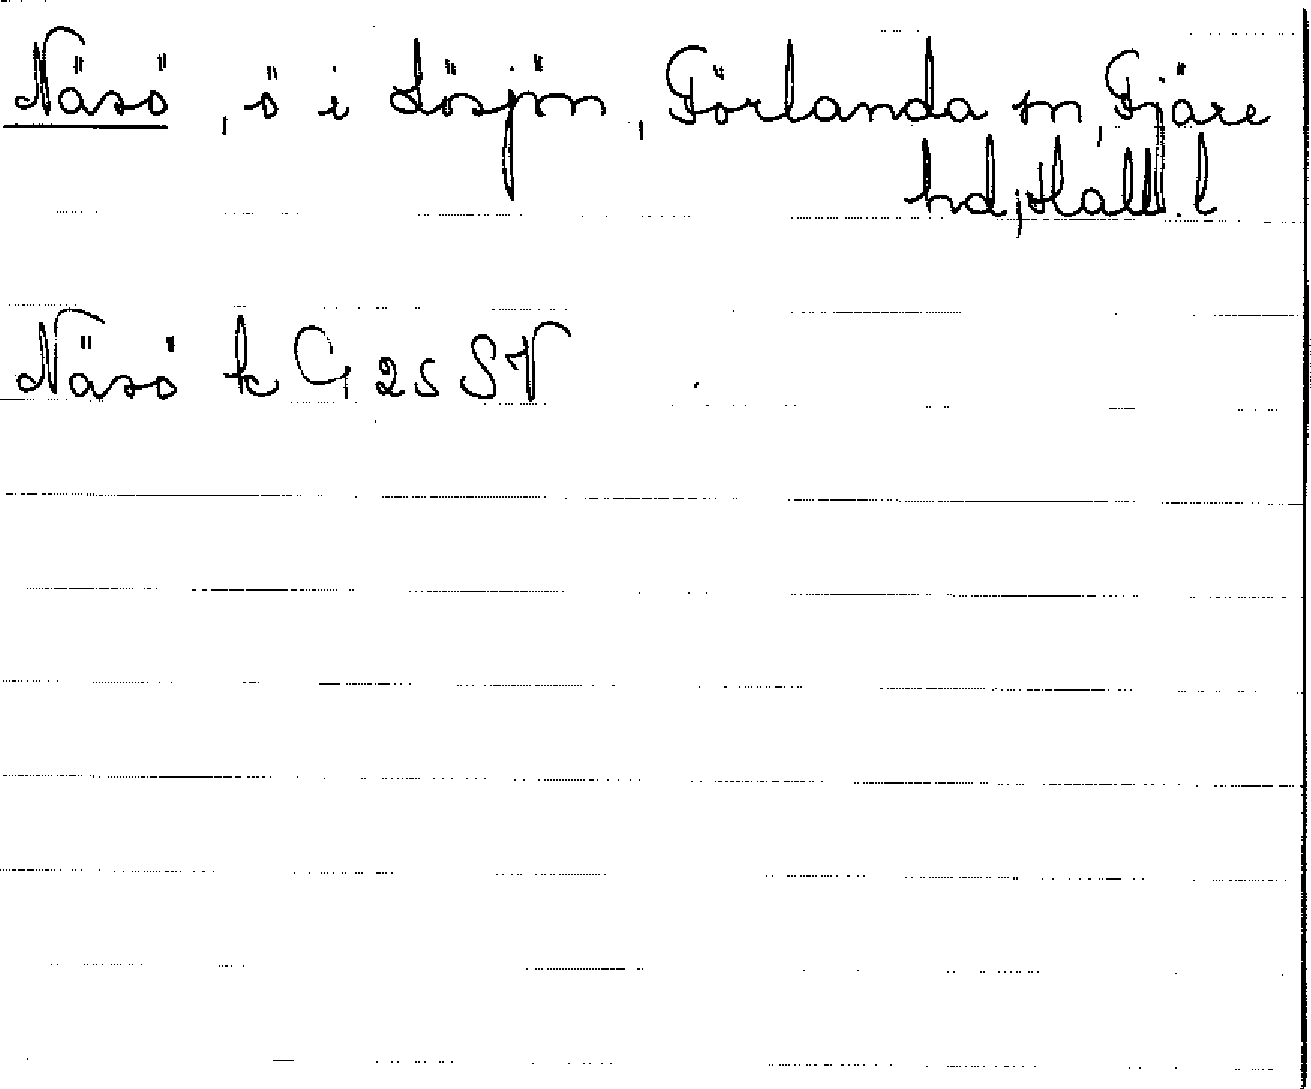 Näsö, ö i Lösjön, Förlanda sn, Fjäre
hd, Hall. l
Näsö k G 25 SV